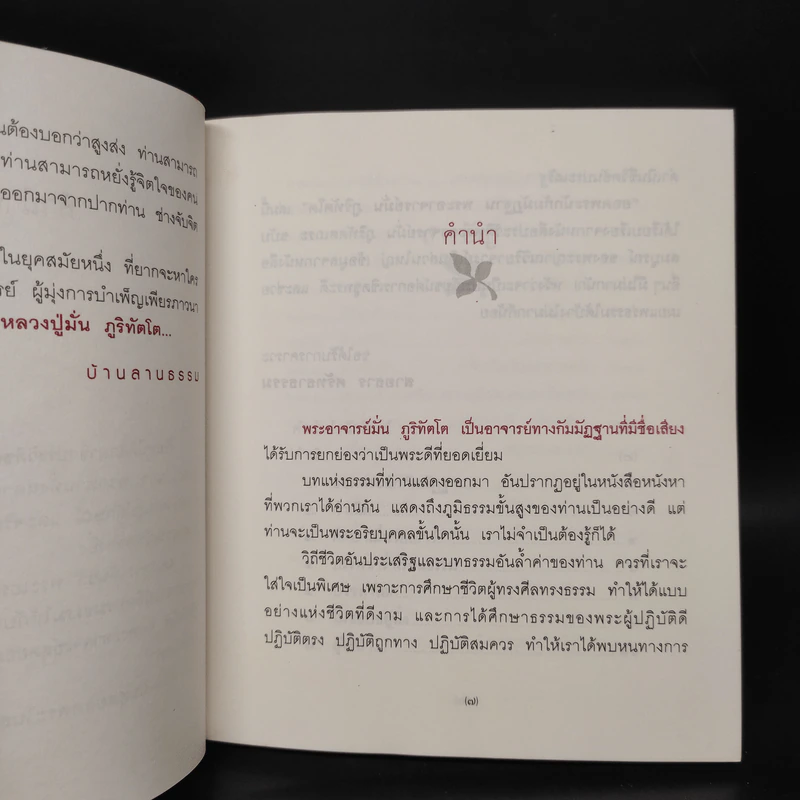 นต้องบอกว่าสูงส่ง ท่านสามารถ
ท่านสามารถหยั่งรู้จิตใจของคน
ออกมาจากปากท่าน ช่างจับจิต
ในยุคสมัยหนึ่ง ที่ยากจะหาใคร
รย์ ผู้มุ่งการบำเพ็ญเพียรภาวนา
หลวงปู่มั่น ภูริทัตโต...
บ้านลานธรรม
คำนำ
พระอาจารย์มั่น ภูริทัตโต เป็นอาจารย์ทางกัมมัฏฐานที่มีชื่อเสียง
ได้รับการยกย่องว่าเป็นพระดีที่ยอดเยี่ยม
บทแห่งธรรมที่ท่านแสดงออกมา อันปรากฏอยู่ในหนังสือหนังหา
ที่พวกเราได้อ่านกัน แสดงถึงภูมิธรรมชั้นสูงของท่านเป็นอย่างดี แต่
ท่านจะเป็นพระอริยบุคคลขั้นใดนั้น เราไม่จำเป็นต้องรู้ก็ได้
วิถีชีวิตอันประเสริฐและบทธรรมอันล้ำค่าของท่าน ควรที่เราจะ
ใส่ใจเป็นพิเศษ เพราะการศึกษาชีวิตผู้ทรงศีลทรงธรรม ทำให้ได้แบบ
อย่างแห่งชีวิตที่ดีงาม และการได้ศึกษาธรรมของพระผู้ปฏิบัติดี
ปฏิบัติตรง ปฏิบัติถูกทาง ปฏิบัติสมควร ทำให้เราได้พบหนทางการ
(๗)